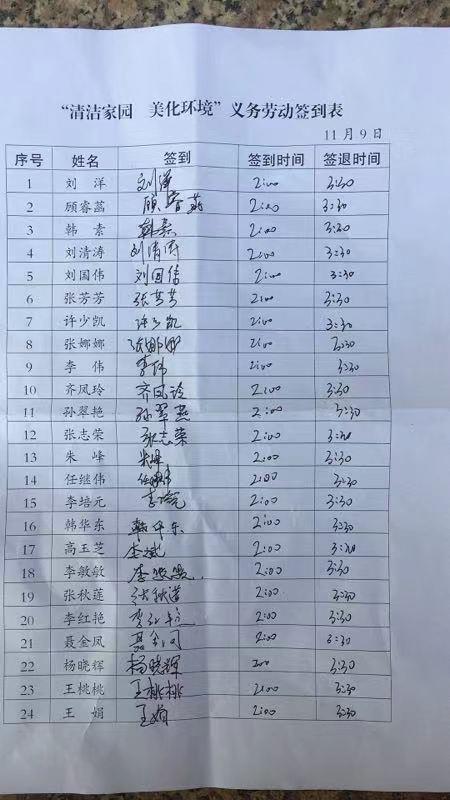 “清洁家园 美化环境”义务劳动签到表
11月9日
序号 姓名 签到 签到时间 签退时间
1 刘洋 刘洋 2:00 3:30
2 顾睿蕌 顾睿 2:00 3:30
3 韩素 韩素 2:00 3:30
4 刘清涛 刘清涛 2:00 3:30
5 刘国伟 刘国伟 2:00 3:30
6 张芳芳 张芳芳 2:00 3:30
7 许少凯 许少凯 2:00 3:30
8 张娜娜 张娜娜 2:00 3:30
9 李伟 李伟 2:00 3:30
10 齐凤玲 齐凤玲 2:00 3:30
11 孙翠艳 孙翠燕 2:00 3:30
12 张志荣 张志荣 2:00 3:30
13 朱峰 朱峰 2:00 3:30
14 任继伟 任继伟 2:00 3:30
15 李培元 2:00 3:30
16 韩华东 韩华东 2:00 3:30
17 高玉芝 李斌 2:00 3:30
18 李敏敏 李敏敏 2:00 3:30
19 张秋莲 张秋莲 2:00 3:30
20 李红艳 李红艳 2:00 3:30
21 聂金凤 聂金凤 2:00 3:30
22 杨晓辉 杨晓辉 200 3:30
23 王桃桃 王桃桃 2:00 3:30
24 王娟 王娟 2:00 3:30